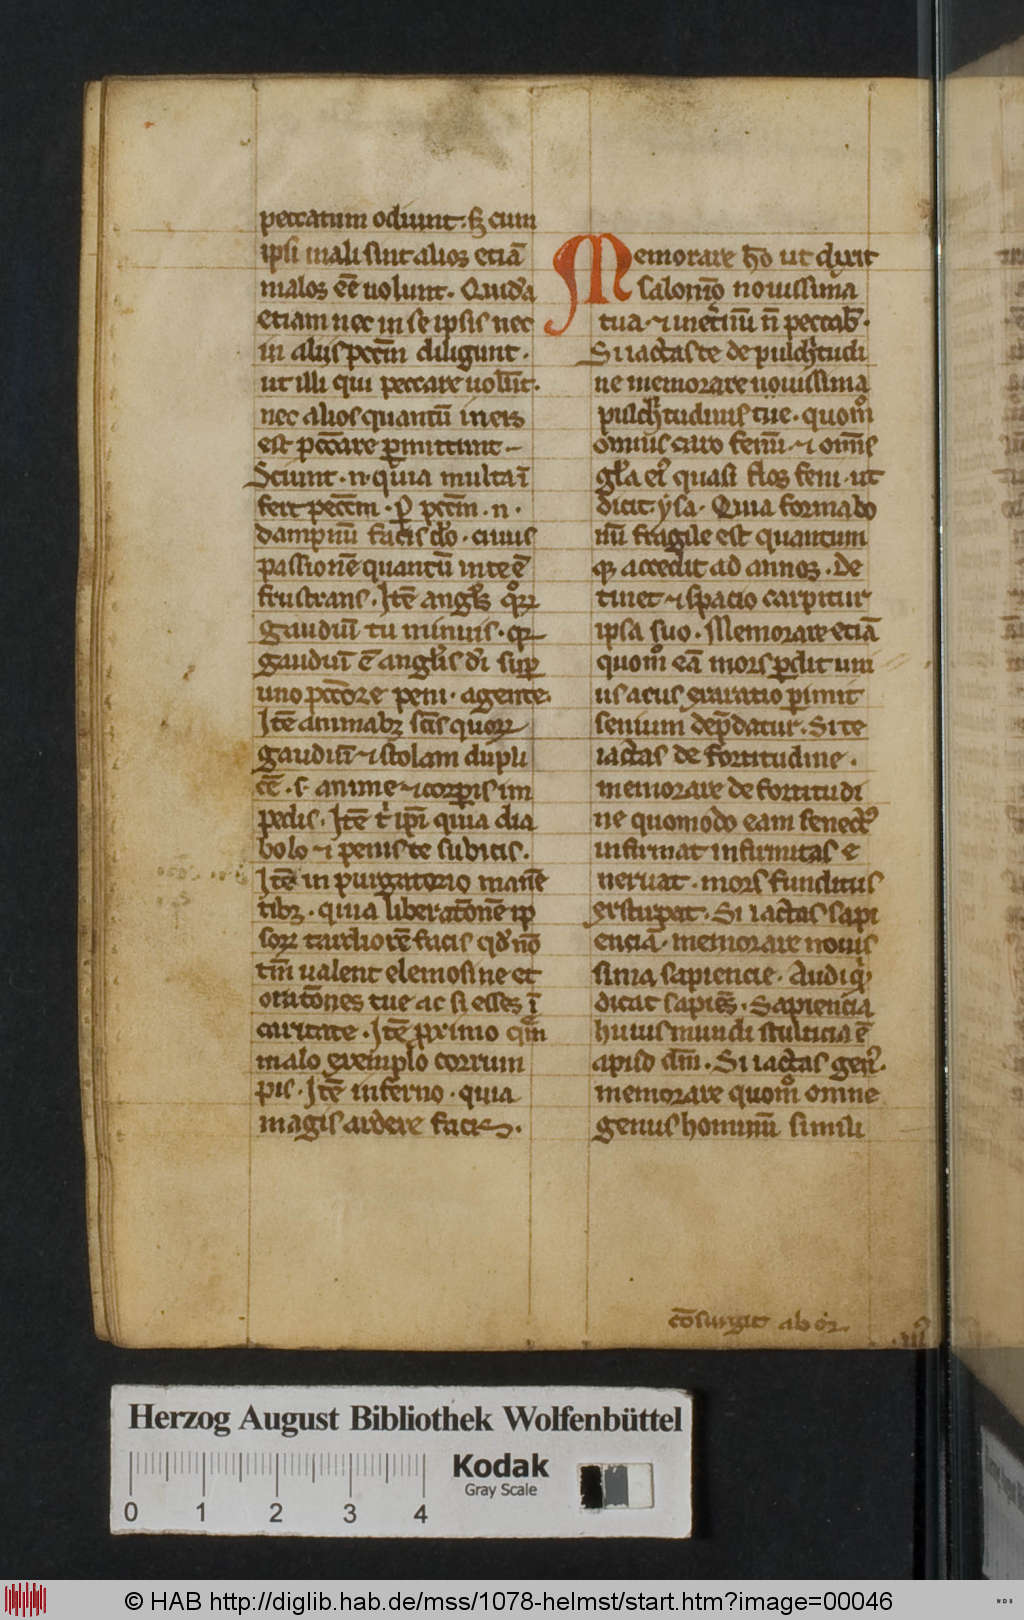 peccatum odiunt. sꝫ cum
ipsi mali sint alios etiā
malos eē uolunt. Quidā
etiam nec in se ipsis nec
in aliis pccm̄ diligunt.
ut illi qui peccare nolūt.
nec alios quantū in eis
est pccare ꝑmittunt
Sciunt. n. quia multa ī
fert peccm̄. ꝑ pccm̄. n.
dampnū facis deo. cuius
passionē quantū in te ē
frustrans. Itē angl̄s quoꝝ
gaudiū tu minuis. qꝛ
gaudiū ē angl̄is dī suꝑ
uno pccore peni. agente.
Itē animabꝫ sc̄is quoꝝ
gaudiū ⁊ stolam dupli
cē. s. anime ⁊ corꝑis im
pedis. Itē t ipi quia dia
bolo ⁊ penis te subicis.
Itē in purgatorio manē
tibꝫ. quia liberatōnē ip
soꝝ tardiorē facis qd nō
tm̄ ualent elemosine et
oratōnes tue ac si esses ī
caritate. Itē ꝓximo quē
malo exemplo corrum
pis. Itē inferno. quia
magis ardere facis.
Memorare hō ut dixit
salomō nouissima
tua. ⁊ inet̄nū n̄ peccab̄.
Si iactas te de pulch̄tudi
ne memorare nouissima
pulch̄tudinis tue. quomo
omnis caro fenū. ⁊ om̄is
gl̄a ei quasi flos feni. ut
dicit. ysa. Quia forma bo
nū fragile est quantum
qꝫ accedit ad annos. De
tinet ⁊ spacio carpitur
ipsa suo. Memorare etiā
quomo eā mors ꝑdit uni
us acus exaratio ꝑimit
senium dep̄datur. Si te
iactas de fortitudine.
memorare de fortitudi
ne quomodo eam senect
infirmat infirmitas e
neruat. mors funditus
exstirpat. Si iactas sapi
enciā. memorare nouis
sima sapiencie. Audi qd
dicat sapiēs. Sapiencia
huius mundi stulticia ē
apud dm̄. Si iactas gen
memorare quomo omne
genus hominū simili
cōsurgit ab or
Herzog August Bibliothek Wolfenbüttel
Kodak
Gray Scale
0 1 2 3 4
© HAB http://diglib.hab.de/mss/1078-helmst/start.htm?image=00046